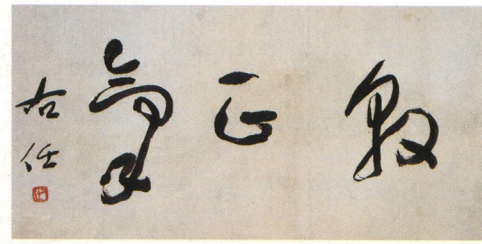 養正氣
右任